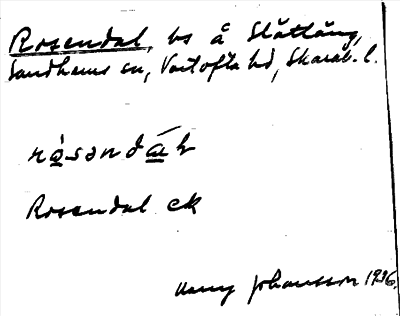 Rosendal, bs å Slättäng,
Sandhems sn, Vartofta hd, Skarab. l.
rosendal ek
Anny Johansson 1936.